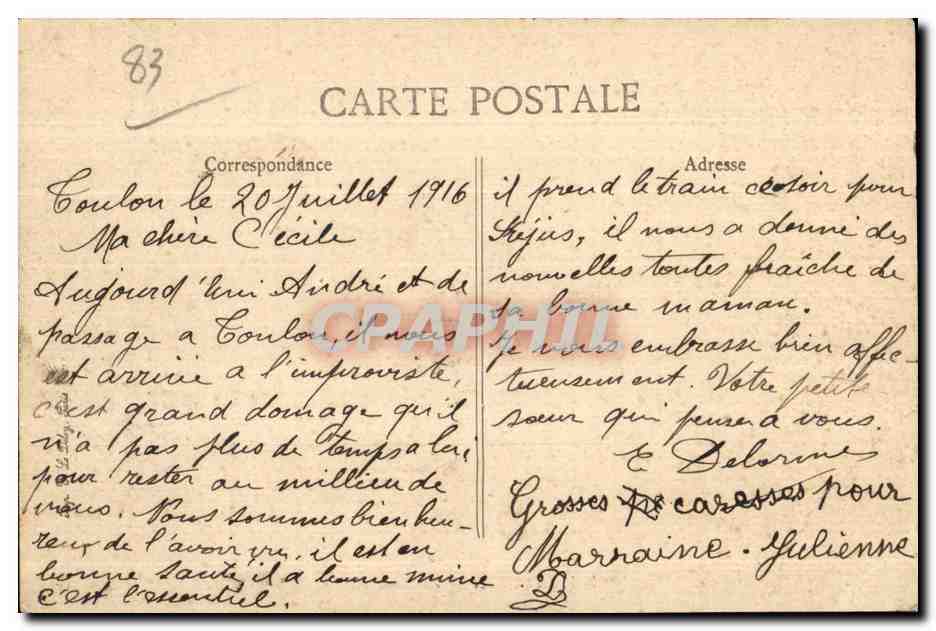 83
CARTE POSTALE
Correspondance
Toulon le 20 Juillet 1916
Ma chère Cécile
Augourd'hui André et de
passage a Toulon, il nous
est arrivé a l'improviste,
c'est grand domage qu'il
n'a pas plus de temps a lui,
pour rester au millieu de
nous. Nous sommes bien heu-
reux de l'avoir vu, il est en
bonne santé, il a bonne mine
c'est l'essentiel.
Adresse
il prend le train ce soir pour
Fréjus, il nous a donné des
nouvelles toutes fraîche de
sa bonne maman.
Je vous embrasse bien affec-
tueusement. Votre petite
sœur qui pense a vous.
E Delorme
Grosses caresses pour
Marraine. Julienne
D
CPAPHIL